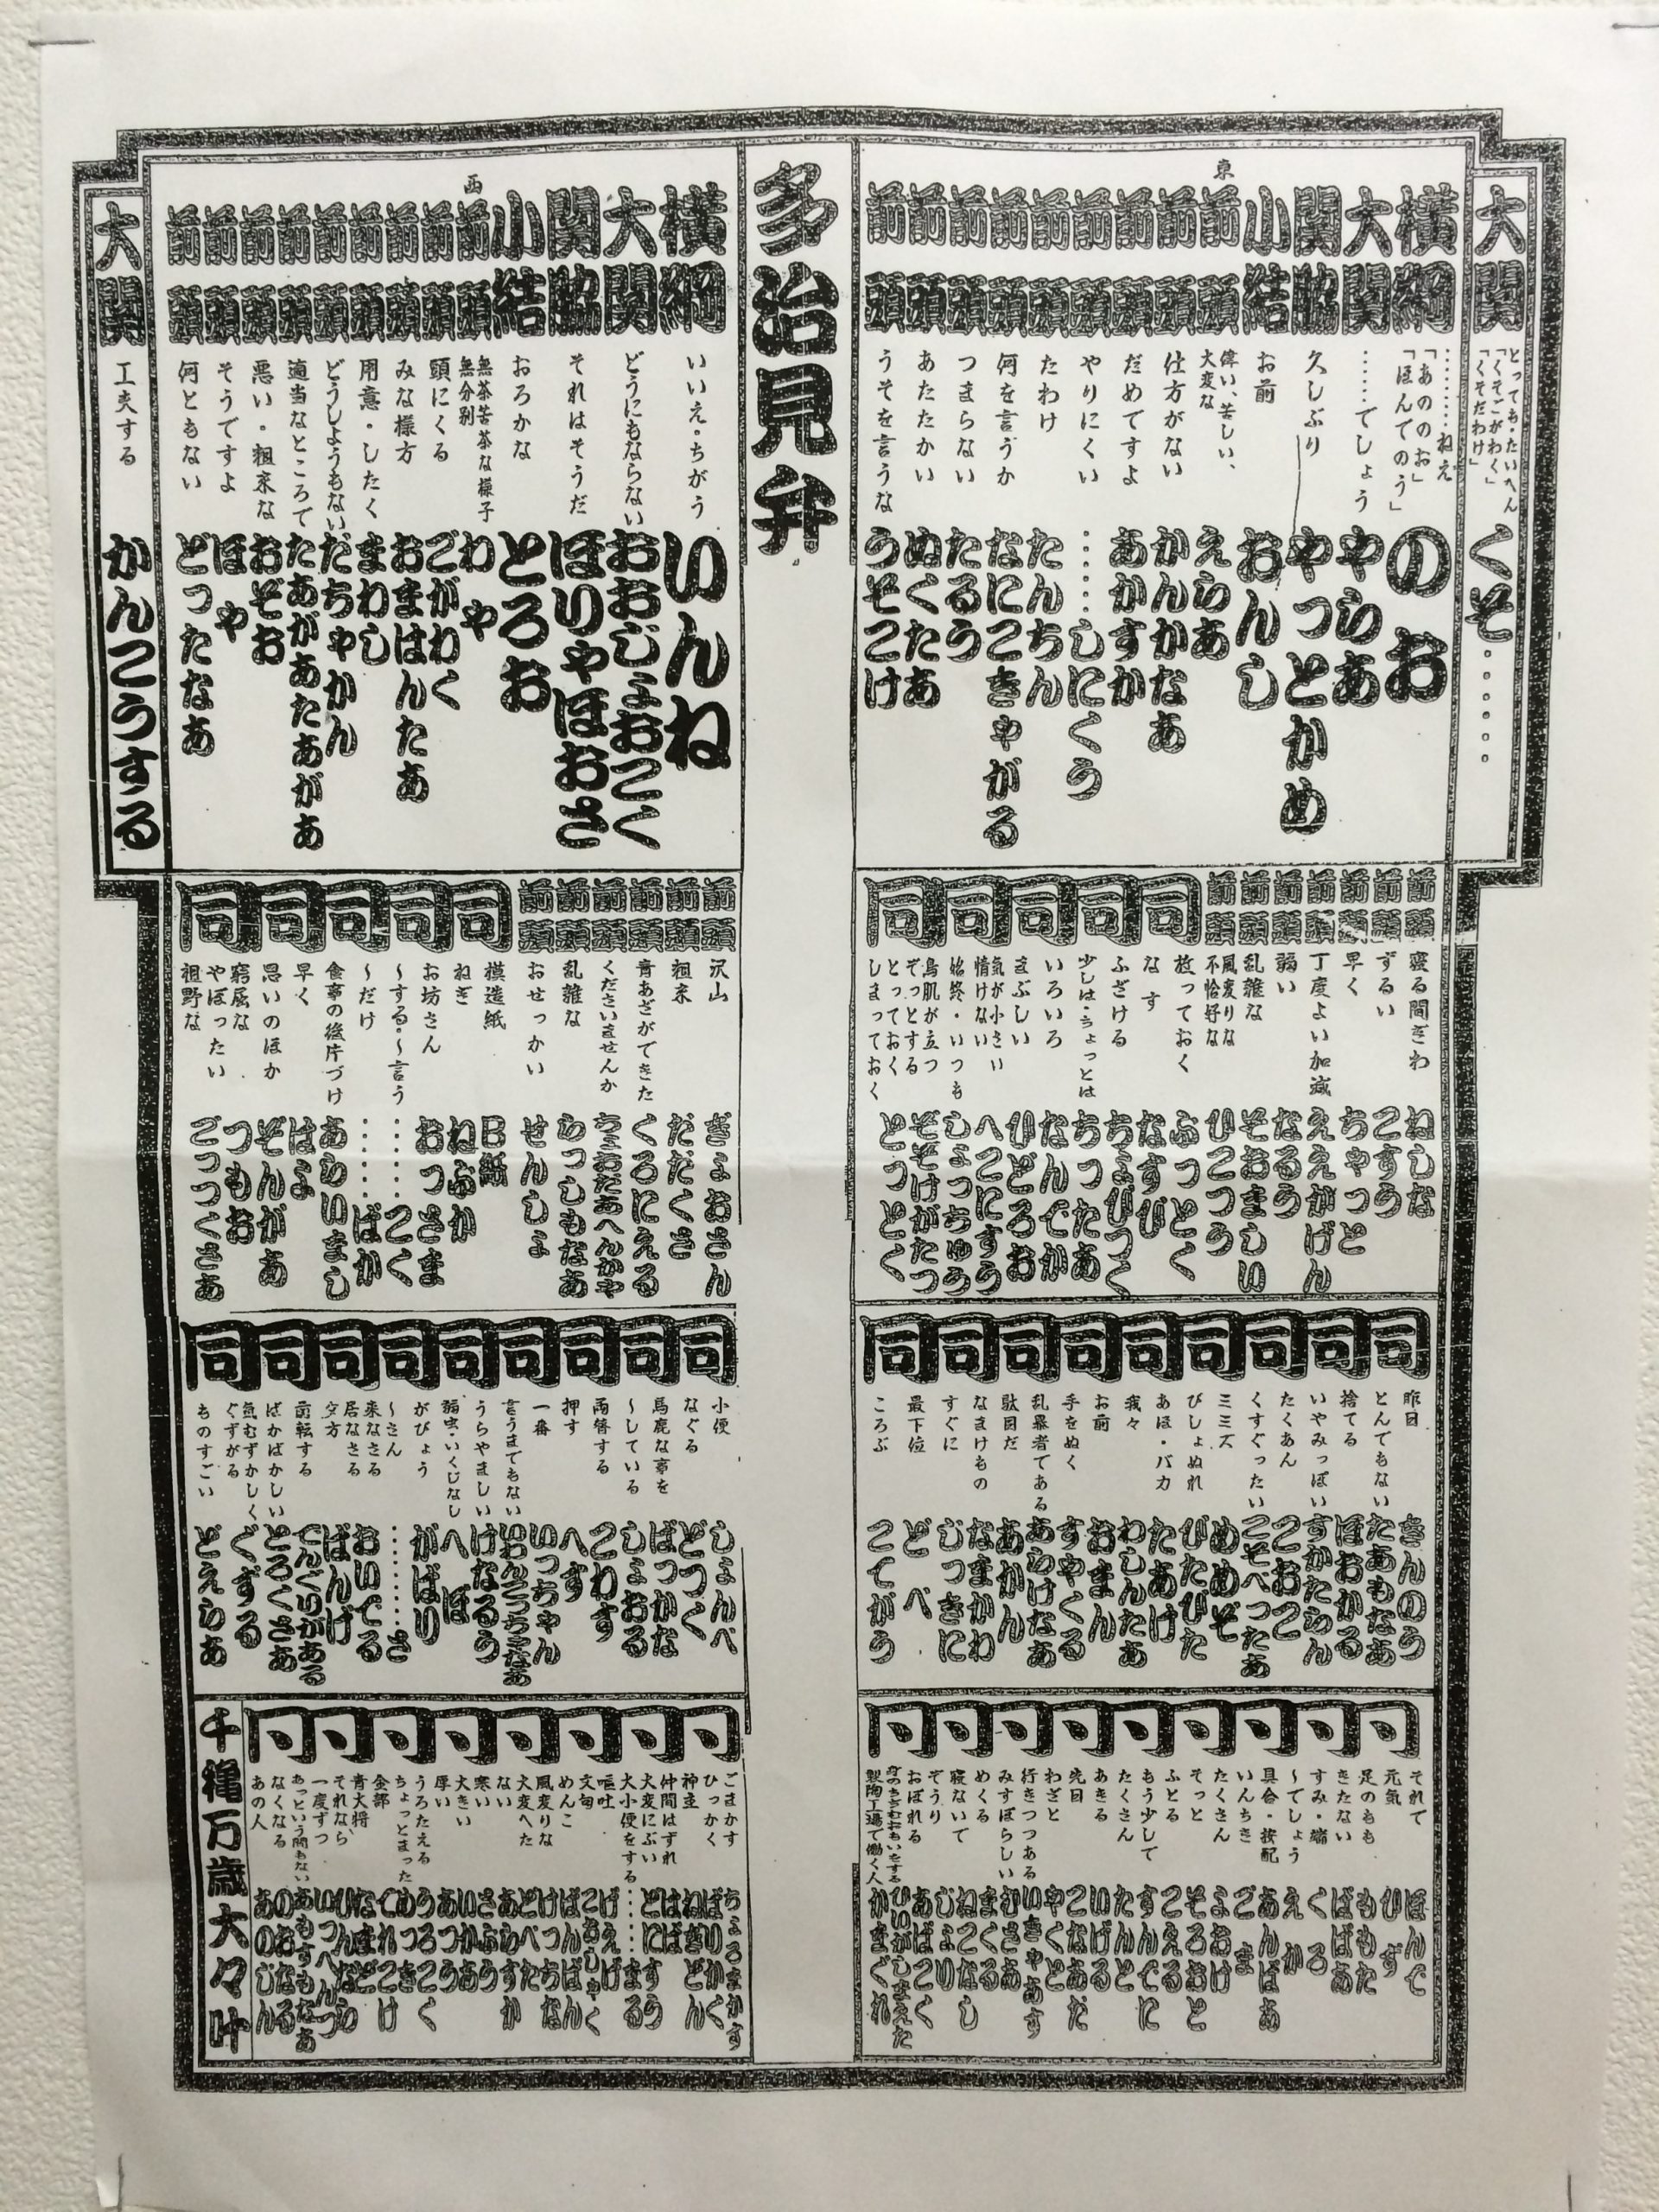 大関 とっても・たいへん「くそごがわく」「くそだわけ」 くそ……
東
横綱 ………ねえ「あののお」「ほんでのう」 のお
大関 ……でしょう やらあ
関脇 久しぶり やっとかめ
小結 お前 おんし
前頭 偉い、苦しい、大変な えらあ
前頭 仕方がない かんかなあ
前頭 だめですよ あかすか
前頭 やりにくい ……しにくう
前頭 たわけ たんちん
前頭 何を言うか なにこきゃがる
前頭 つまらない たるう
前頭 あたたかい ぬくたあ
前頭 うそを言うな うそこけ
多治見弁
西
横綱 いいえ・ちがう いんね
大関 どうにもならない おおじょおこく
関脇 それはそうだ ほりゃほおさ
小結 おろかな とろお
前頭 無茶苦茶な様子 無分別 わや
前頭 頭にくる ごがわく
前頭 みな様方 おまはんたあ
前頭 用意・したく まわし
前頭 どうしようもない だちゃかん
前頭 適当なところで たあがあたあがあ
前頭 悪い・粗末な おぞお
前頭 そうですよ ほや
前頭 何ともない どったなあ
大関 工夫する かんこうする
前頭 寝る間ぎわ ねしな
前頭 ずるい こすう
前頭 早く ちゃっと
前頭 丁度よい加減 ええかげん
前頭 弱い なるう
前頭 乱雑な ぞおましい
前頭 風変りな 不恰好な ひこつう
同 放っておく ふっとく
なす なすび
同 ふざける ちょびつく
少しは・ちょっとは ちったあ
同 いろいろ なんでか
まぶしい ひどろお
同 気が小さい 情けない へこにすう
始終・いつも しょっちゅう
同 鳥肌が立つ ぞっとする ぞぞけがたつ
とっておく しまっておく とっとく
前頭 沢山 ぎょおさん
前頭 粗末 だだくさ
前頭 青あざができた くろにえる
前頭 くださいませんか ちょおだあへんかゃ
前頭 乱雑な らっしもなあ
前頭 おせっかい せんしょ
同 模造紙 B紙
ねぎ ねぶか
同 お坊さん おっさま
〜する・〜言う ……こく
同 〜だけ ……ばか
食事の後片づけ あらいまし
同 早く はよ
思いのほか ぞんがあ
同 窮屈な つもお
やぼったい 粗野な ごっつくさあ
同 昨日 きんのう
とんでもない たあもなあ
同 捨てる ほおかる
いやみっぽい すかたらん
同 たくあん こおこ
くすぐったい こそべったあ
同 ミミズ めめぞ
びしょぬれ びたびた
同 あほ・バカ たあけ
我々 わしんたあ
同 お前 おまん
手をぬく すやくる
同 乱暴者である あらけなあ
駄目だ あかん
同 なまけもの なまかわ
すぐに じっきに
同 最下位 どべ
ころぶ こてがう
同 小便 しょんべ
なぐる どつく
同 馬鹿な事を ばっかな
〜している しょおる
同 両替する こわす
押す へす
同 一番 いっちゃん
言うまでもない
同 うらやましい けなるう
弱虫・いくじなし へぼ
同 がびょう がばり
〜さん ……さ
同 来なさる 居なさる おいでる
夕方 ばんげ
同 前転する でんぐりがある
ばかばかしい とろくさあ
同 気むずかしく ぐずがる ぐずる
ものすごい どえらあ
それで ほんで
元気 ひず
足のもも ももた
きたない ばばあ
すみ・端 くろ
〜でしょう えか
具合・按配 あんばあ
いんちき ごま
たくさん よおけ
そっと そろおと
ふとる こえる
もう少しで すんでに
たくさん たんと
あきる いげる
先日 こなあだ
わざと やくと
行きつつある いきゃあす
みすぼらしい むさあ
めくる まくる
寝ないで ねこなし
ぞうり じょり
おぼれる あばこく
身のちぢむおもいをする ひいがしまえた
製陶工場で働く人 かまぐれ
ごまかす ちょろまかす
ひっかく ばりかく
神主 ねぎどん
仲間はずれ はばさ
大変にぶい どにすう
大小便をする ……まる
嘔吐 げえげ
文句
めんこ ばんばん
風変りな けったあ
大変へた どべた
ない あらすか
寒い さぶう
大きい いかあ
厚い あつう
うろたえる うろこく
ちょっとまった
全部
青大将
それなら
一度ずつ いっぺんつつ
あっという間もない あもすもなあ
なくなる のおなる
あの人 あのじん
千穐万歳大々叶